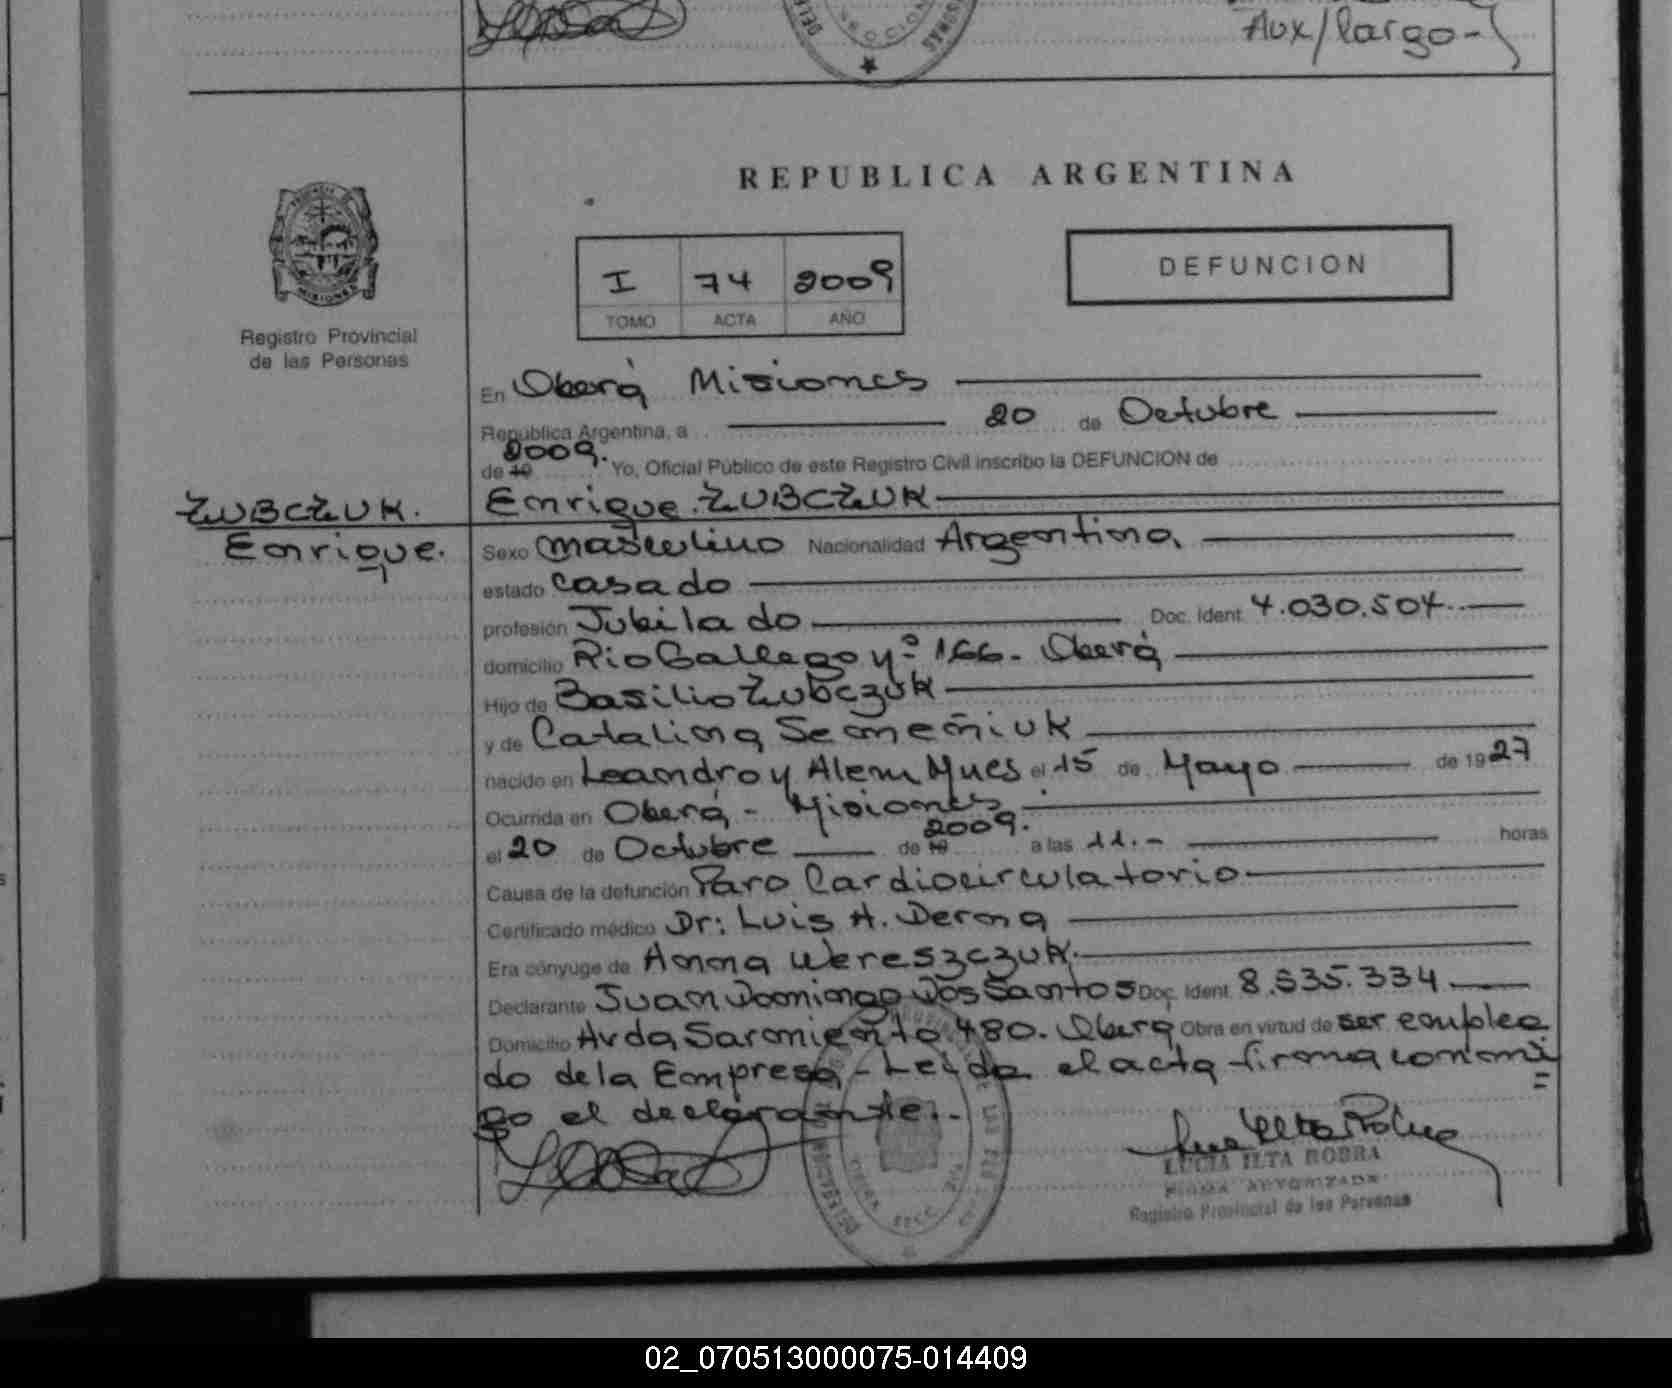 Aux/largo-
REPUBLICA ARGENTINA
I 74 2009
TOMO ACTA AÑO
DEFUNCION
MISIONES
Registro Provincial
de las Personas
En Oberá Misiones
República Argentina, a 20 de Octubre
de 19 2009. Yo, Oficial Público de este Registro Civil inscribo la DEFUNCION de
ZUBCZUK. Enrique. ZUBCZUK
Enrique. Sexo masculino Nacionalidad Argentina.
estado casado
profesión Jubilado Doc. Ident. 4.030.504.
domicilio Rio Gallego nº 166. Oberá
Hijo de Basilio Zubczuk
y de Catalina Semeñiuk
nacido en Leandro N Alem Mnes el 15 de Mayo de 1927
Ocurrida en Oberá - Misiones
el 20 de Octubre de 19 2009. a las 11.- horas
Causa de la defunción Paro Cardiocirculatorio
Certificado médico Dr: Luis A. Derna
Era cónyuge de Anna Wereszczuk.
Declarante Juan Domingo Dos Santos Doc. Ident. 8.535.334
Domicilio Avda Sarmiento 480. Oberá Obra en virtud de ser emplea
do de la Empresa - Leída el acta firma conmi=
go el declarante.-
LUCIA ILTA ROBRA
FIRMA AUTORIZADA
Registro Provincial de las Personas
02_070513000075-014409